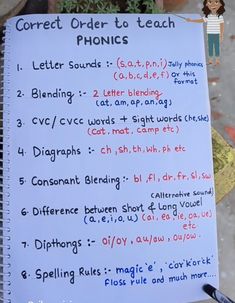 Correct Order to teach
PHONICS
1. Letter Sounds :- (s,a,t,p,n,i) Jolly phonics
(a,b,c,d,e,f) Or this
format
2. Blending :- 2 Letter blending
(at, am, ap, an, ag)
3. CVC/ CVCC Words + Sight words (he,she)
(Cat, mat, camp etc)
4. Diagraphs :- ch, sh, th, wh, ph etc
5. Consonant Blending :- bl, fl, dr, fr, sl, sw
(Alternative sound)
6. Difference between Short & Long Vowel
(a,e,i,o,u) (ai, ea, ie, oa, ue)
etc
7. Dipthongs :- oi/oy, au/aw, ou/ow.
8. Spelling Rules :- magic 'e', 'c'or'k'or'ck'
Floss rule and much more....